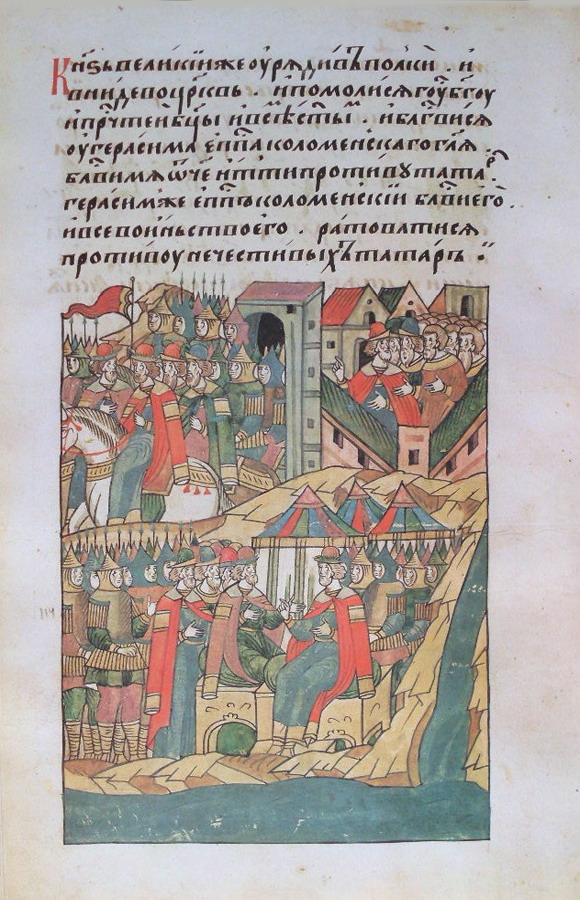 Кнѕь великїи же оурѧдивъ полки . и
вниде во црк҃вь . и помолисѧ гоу бг҃оу
и прч҃тeи бц҃ы и всѣ ст҃ыⷨ и блг҃висѧ
оу герасима еп҃па коломенскаго гл҃ѧ .
блг҃ви мѧ ѿч҃е итти противу татаⷬ .
герасим же еп҃пъ коломенскїи блг҃ви его .
и все воиньство его . ратоватисѧ
противоу нечестивых татаръ ·: